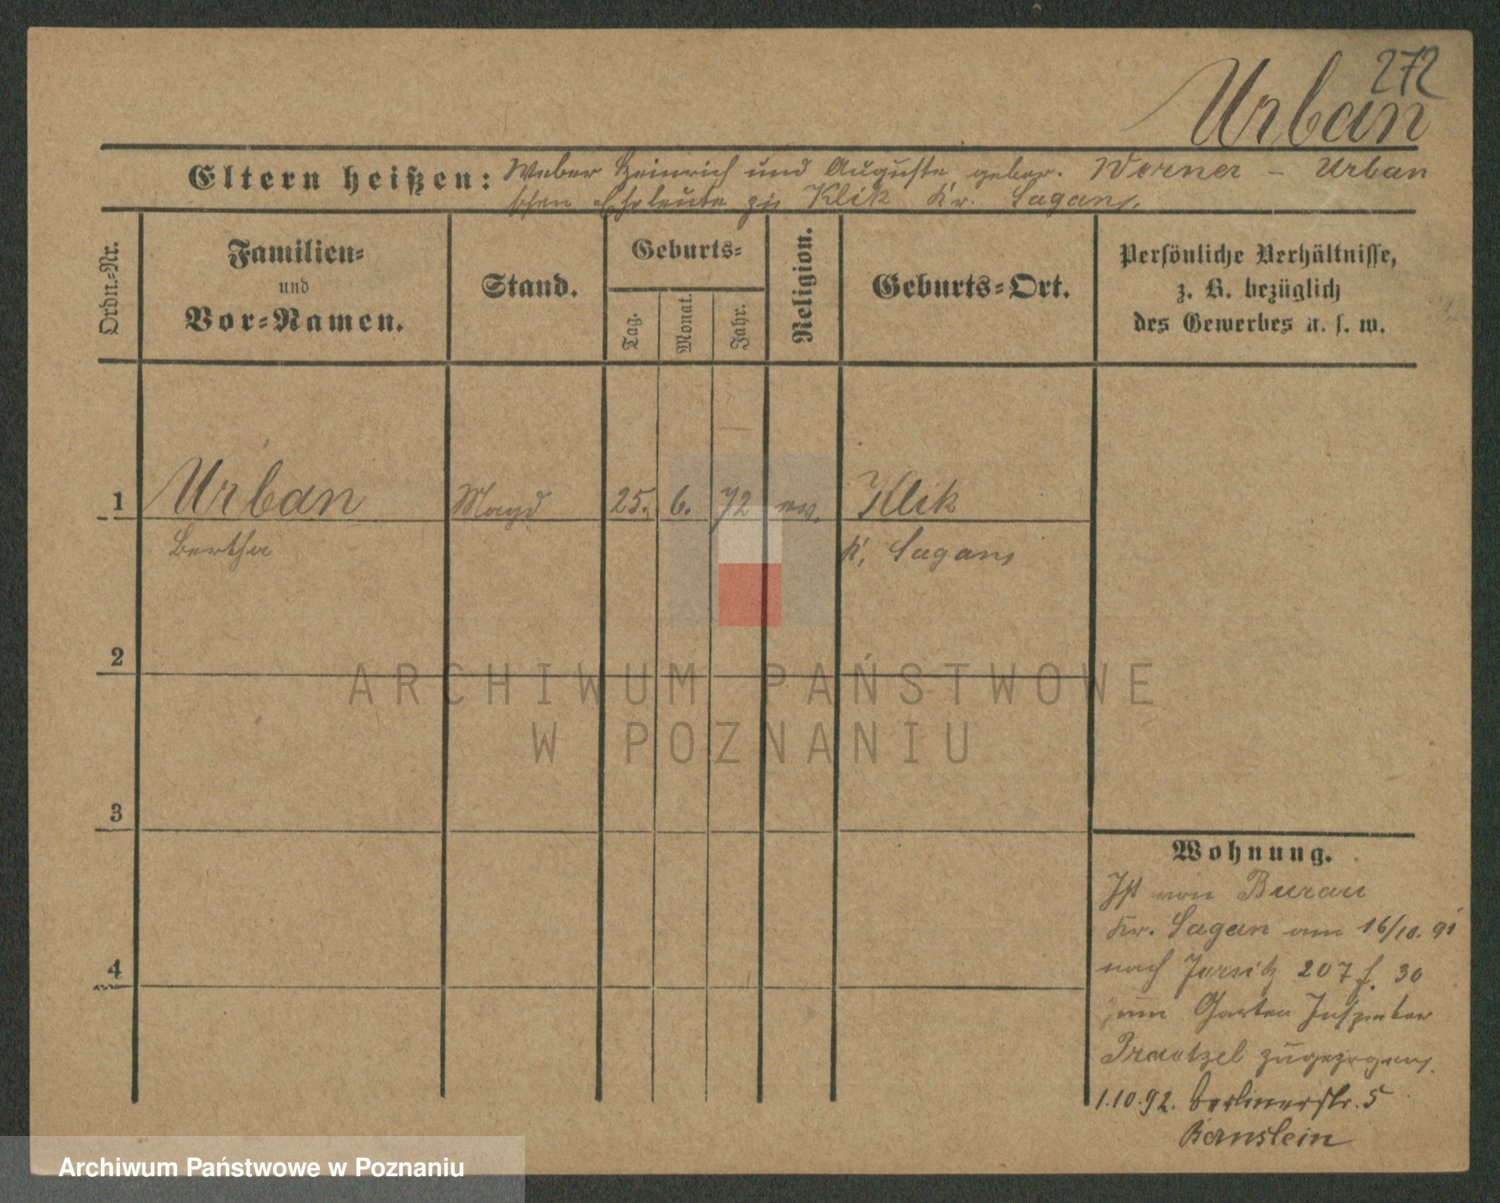 272
Urban
Eltern heißen: Weber Heinrich und Auguste gebor. Werner - Urban
schen Eheleute zu Klik Kr. Sagan.
Ordn.-Nr.
Familien-
und
Vor-Namen.
Stand.
Geburts-
Tag.
Monat.
Jahr.
Religion.
Geburts-Ort.
Persönliche Verhältnisse,
z. B. bezüglich
des Gewerbes u. s. w.
1 Urban Magd 25. 6. 72 ev. Klik
Bertha K. Sagan
2
3
4
Wohnung.
Ist von Burau
Kr. Sagan am 16/10. 91
nach Jersitz 207 f. 30
zum Garten Inspektor
Praetzel zugezogen.
1.10.92. Berlinerstr. 5
Bernstein
ARCHIWUM PAŃSTWOWE
W POZNANIU
Archiwum Państwowe w Poznaniu